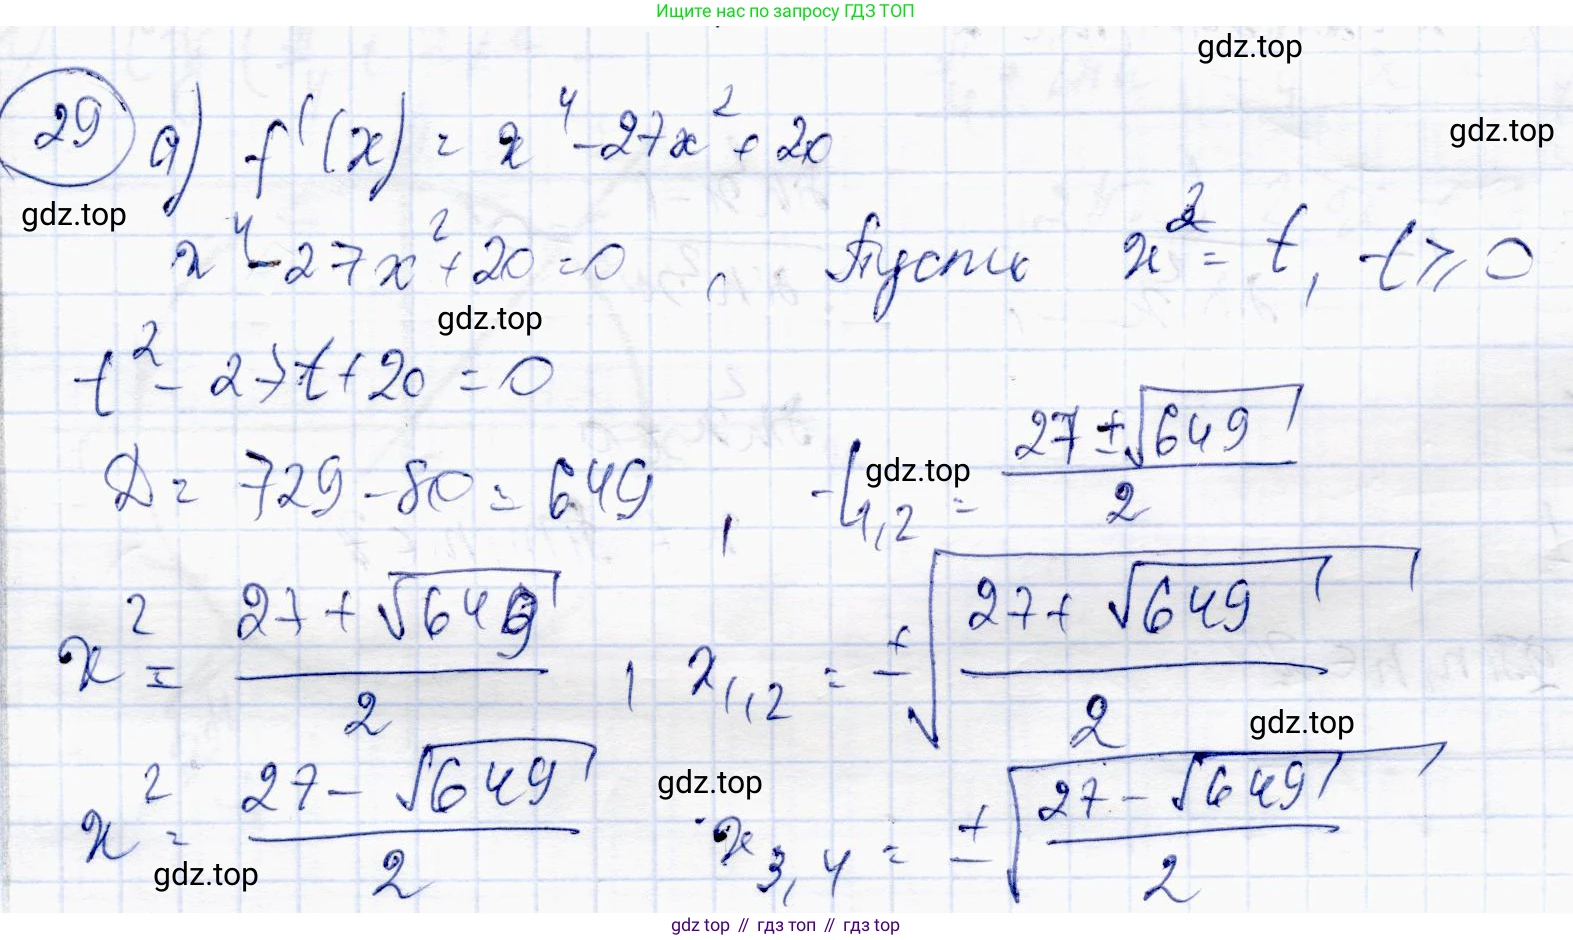 Ищите нас по запросу ГДЗ ТОП
gdz.top
29 а) f'(x) = x⁴ - 27x² + 20
gdz.top
gdz.top
x⁴ - 27x² + 20 = 0, Пусть x² = t, t ⩾ 0
gdz.top
t² - 27t + 20 = 0
D = 729 - 80 = 649, t₁,₂ = (27 ± √649)/2
gdz.top
x² = (27 + √649)/2, x₁,₂ = ±√((27 + √649)/2)
gdz.top
gdz.top
x² = (27 - √649)/2 x₃,₄ = ±√((27 - √649)/2)
gdz.top
gdz top // гдз топ // gdz top